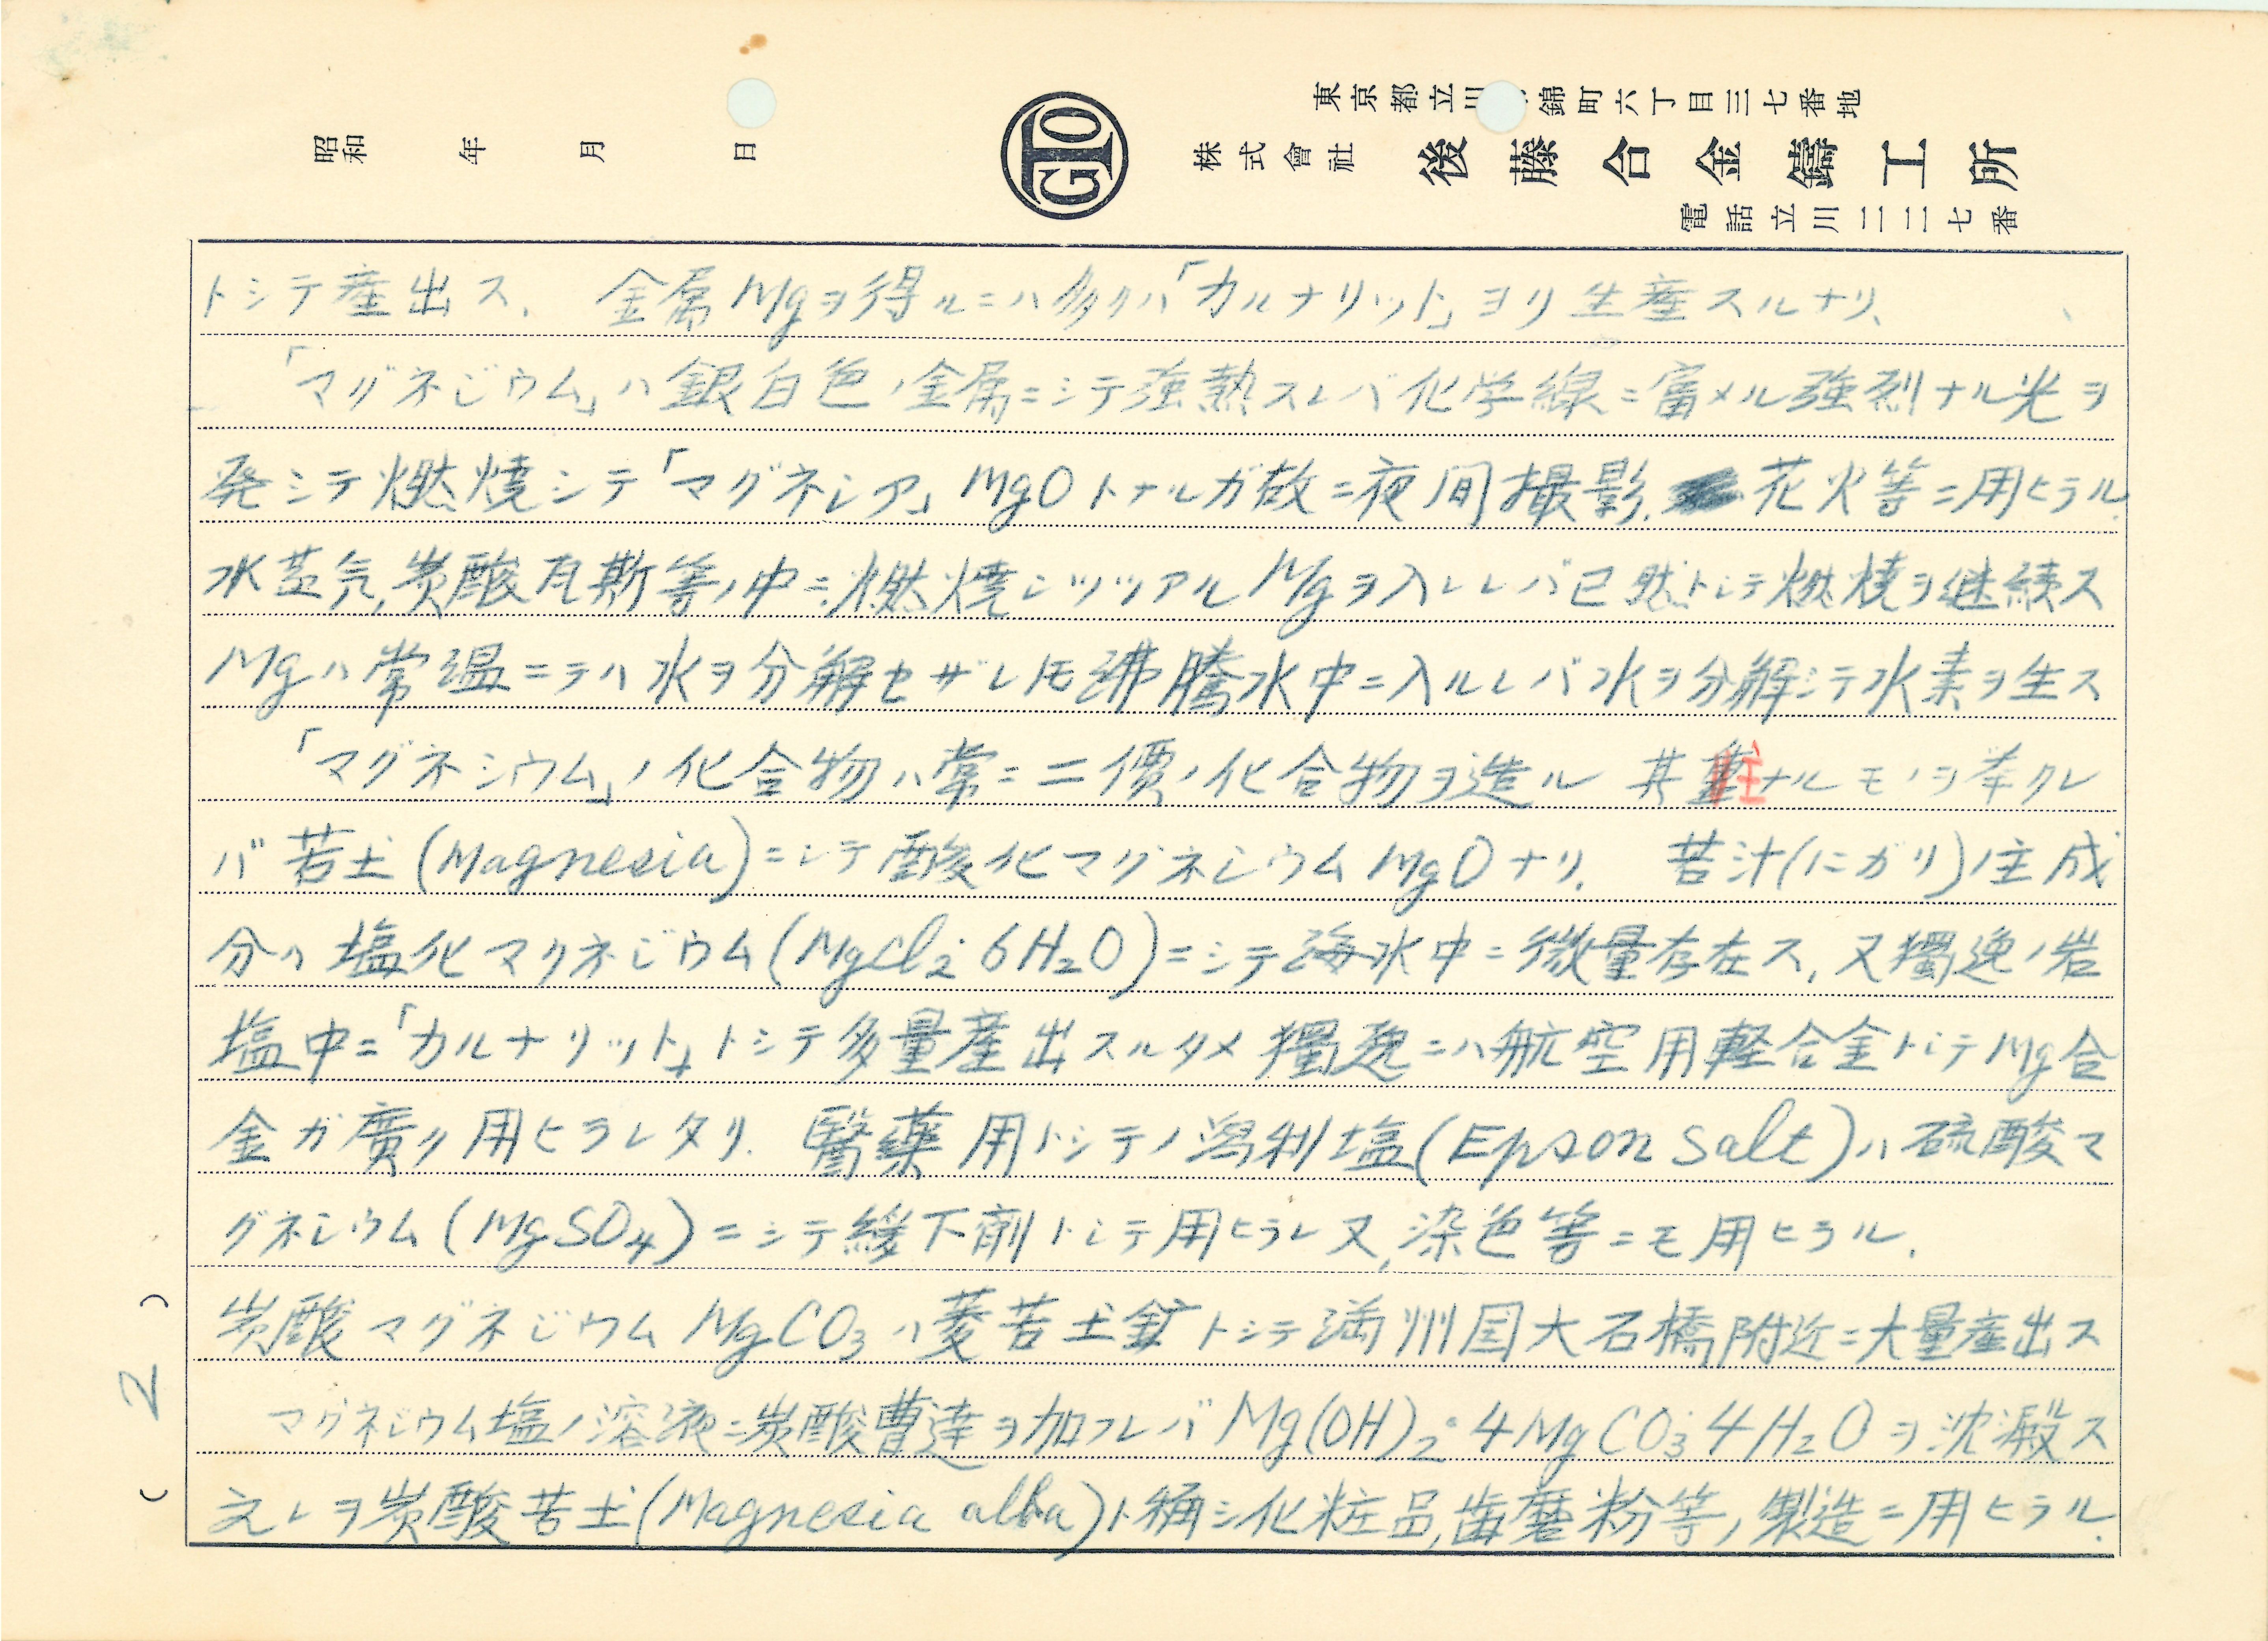 東京都立川 錦町六丁目三七番地
株式會社 後藤合金鑄工所
電話立川二二七番
GTO
昭和 年 月 日
トシテ産出ス、 金属Mgヲ得ルニハ多クハ「カルナリット」ヨリ生産スルナリ、
「マグネジウム」ハ銀白色ノ金属ニシテ強熱スレバ化学線ニ富メル強烈ナル光ヲ
発シテ燃焼シテ「マグネシア」MgOトナルガ故ニ夜间撮影、花火等ニ用ヒラル、
水蒸気,炭酸瓦斯等ノ中ニ燃焼シツツアルMgヲ入レレバ已然トシテ燃焼ヲ継続ス
Mgハ常温ニテハ水ヲ分解セザレ𪜈沸騰水中ニ入ルレバ水ヲ分解シテ水素ヲ生ス
「マグネシウム」ノ化合物ハ常ニ二價ノ化合物ヲ造ル 其主ナルモノヲ挙クレ
バ苦土(Magnesia)ニシテ酸化マグネシウムMgOナリ、 苦汁(にガリ)ノ主成
分ハ塩化マクネジウム(MgCl₂·6H₂O)ニシテ海水中ニ微量存在ス,又獨逸ノ岩
塩中ニ「カルナリット」トシテ多量産出スルタメ獨逸ニハ航空用軽合金トシテMg合
金ガ廣ク用ヒラレタリ、 醫藥用トシテノ瀉利塩(Epson Salt)ハ硫酸マ
グネシウム(MgSO₄)ニシテ緩下剤トシテ用ヒラレ又,染色等ニモ用ヒラル、
炭酸マグネジウムMgCO₃ハ菱苦土鉱トシテ満州国大石橋附近ニ大量産出ス
マグネジウム塩ノ溶液ニ炭酸曹達ヲ加フレバMg(OH)₂·4MgCO₃·4H₂Oヲ沈澱ス
之レヲ炭酸苦土(Magnesia alba)ト稱シ化粧品,歯磨粉等ノ製造ニ用ヒラル、
(2)